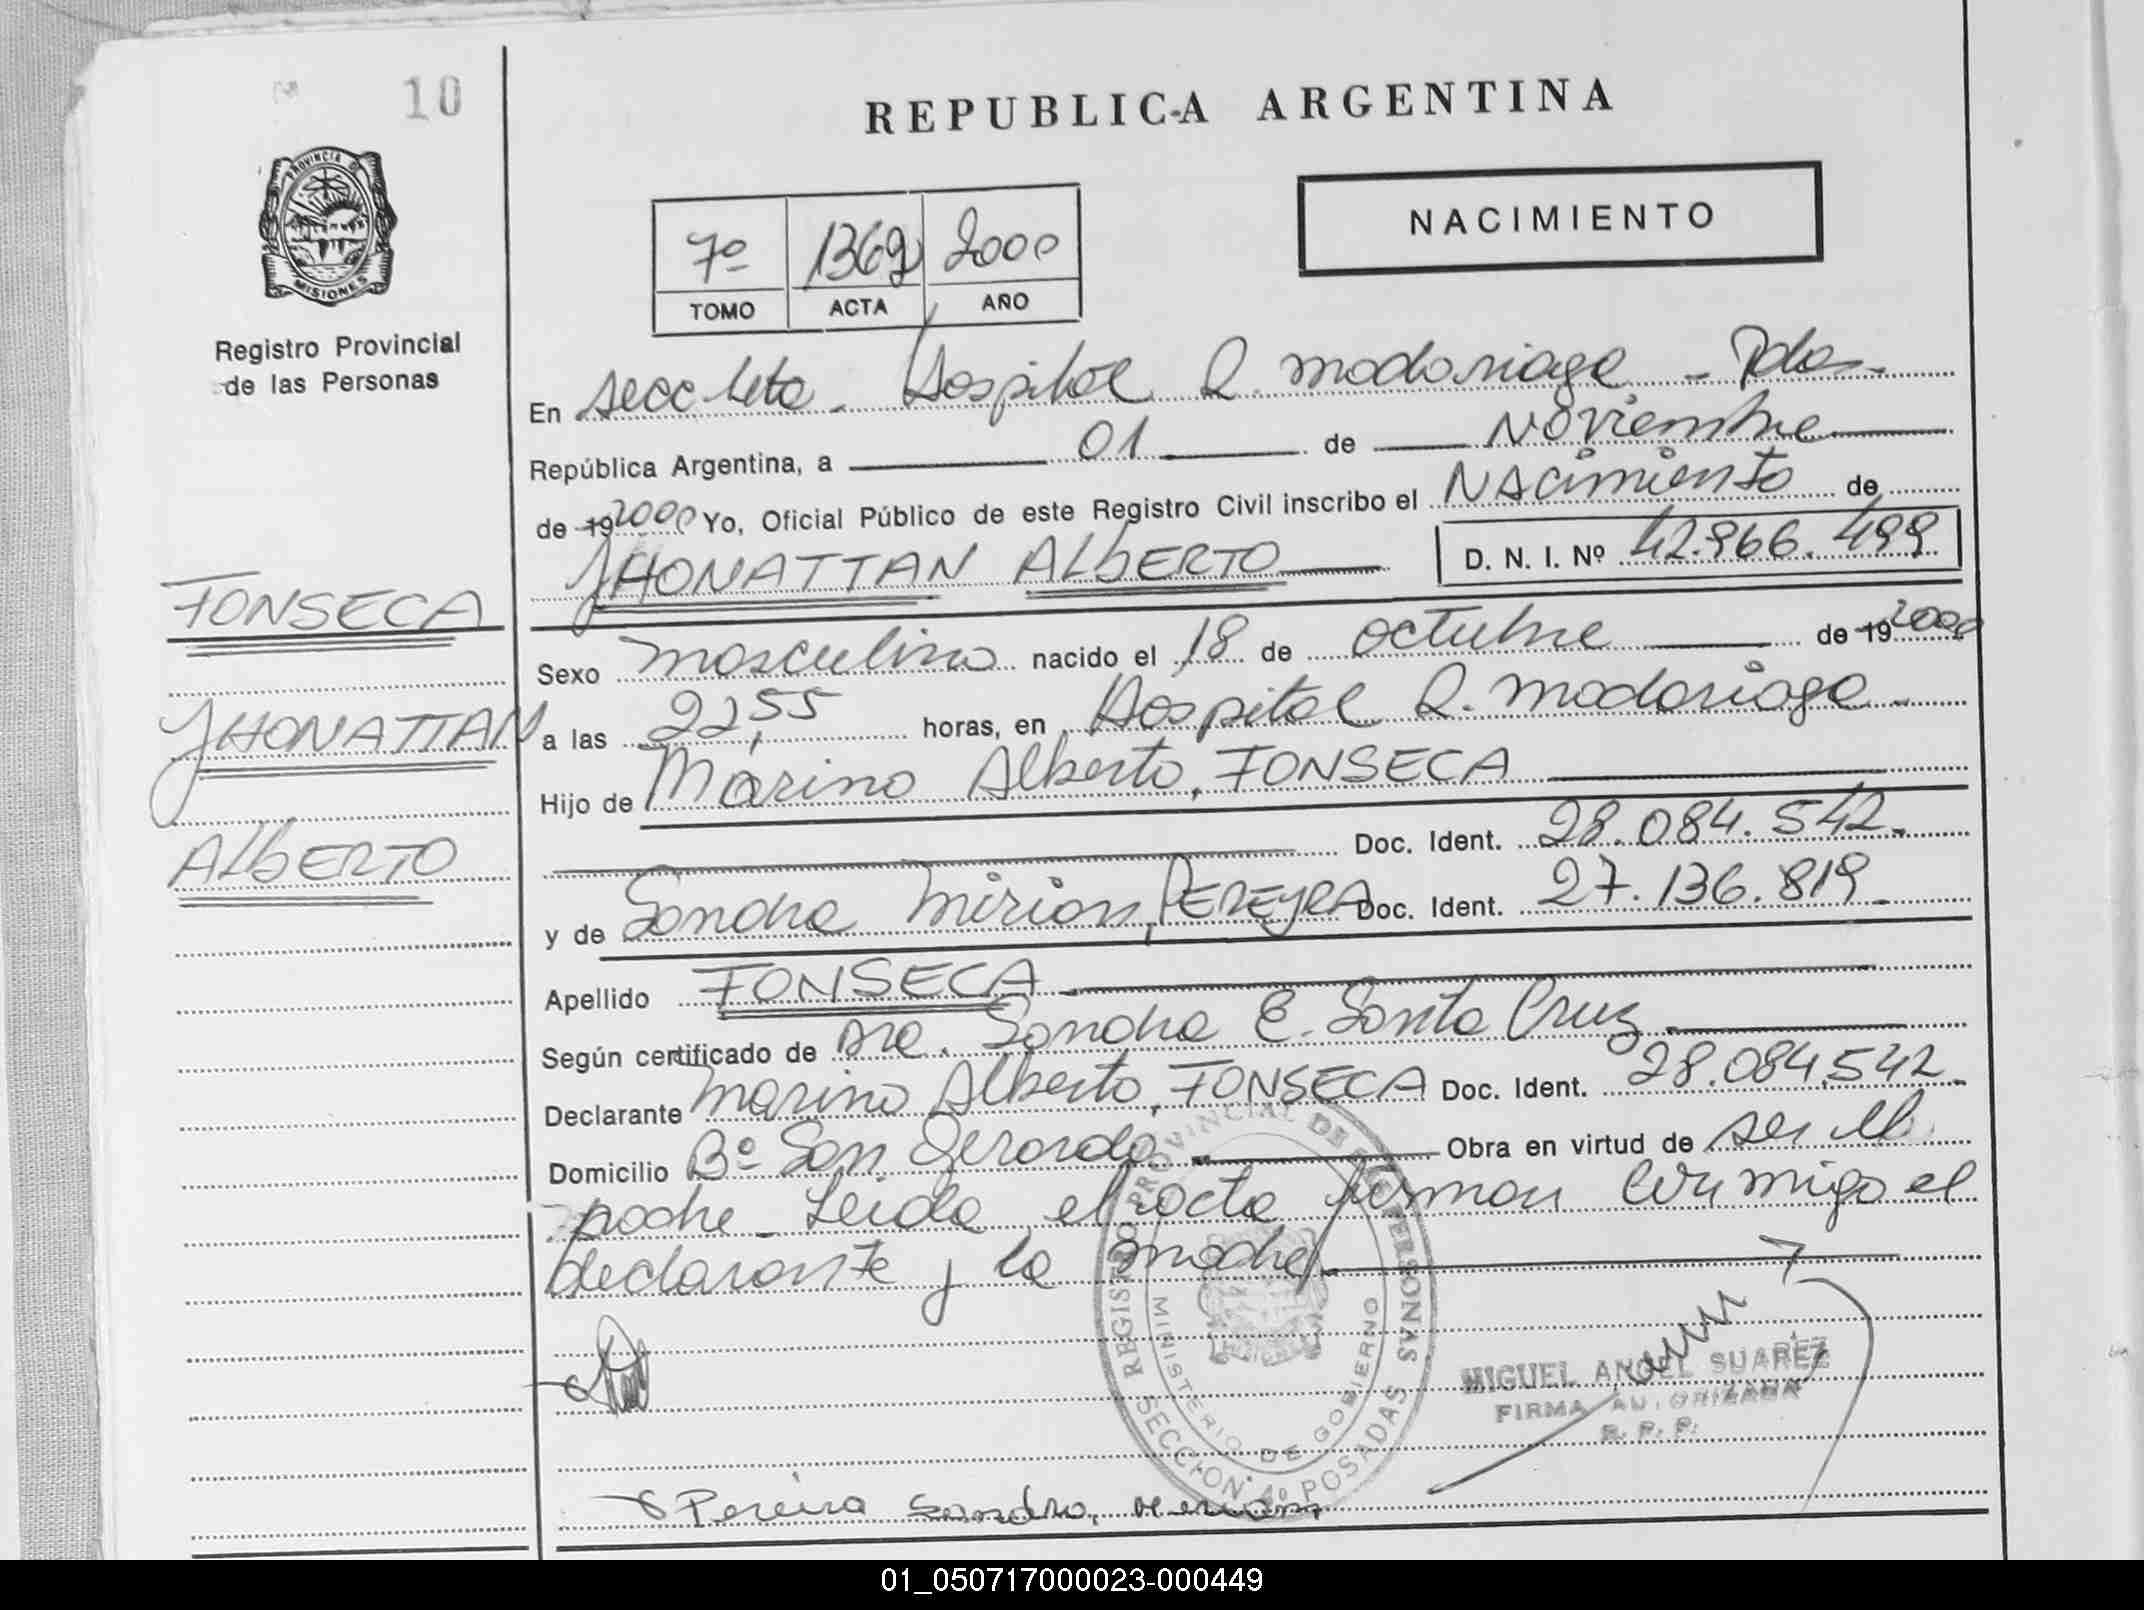 10
REPUBLICA ARGENTINA
PROVINCIA DE
MISIONES
Registro Provincial
de las Personas
7º 1369 2000
TOMO ACTA AÑO
NACIMIENTO
En Secc 4ta. Hospital R. Madariaga - Pdas-
República Argentina, a 01 de Noviembre
de 19 2000 Yo, Oficial Público de este Registro Civil inscribo el NAcimiento de
JHONATTAN ALBERTO D. N. I. Nº 42.966.499
FONSECA
JHONATTAN
ALBERTO
Sexo masculino nacido el 18 de octubre de 19 2000
a las 22,55 horas, en Hospital R. Madariaga -
Hijo de Marino Alberto, FONSECA
Doc. Ident. 28.084.542.
y de Sandra Mirian, PEREYRA Doc. Ident. 27.136.819.
Apellido FONSECA
Según certificado de Dra. Sandra E. Santa Cruz
Declarante Marino Alberto, FONSECA Doc. Ident. 28.084.542.
Domicilio Bº San Gerardo Obra en virtud de ser el
padre - Leida el acta firman conmigo el
declarante y la madre
REGISTRO PROVINCIAL DE LAS PERSONAS
MINISTERIO DE GOBIERNO
SECCION 4º POSADAS
MIGUEL ANGEL SUAREZ
FIRMA AUTORIZADA
R. P. P.
Pereira Sandra,
01_050717000023-000449